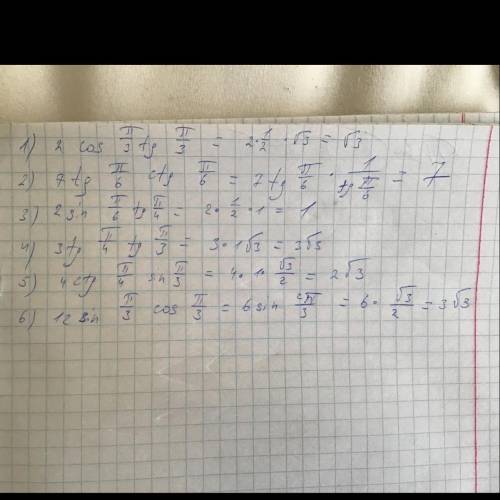 1) 2 cos π/3 tg π/3 = 2·1/2·√3 = √3
2) 7 tg π/6 ctg π/6 = 7 tg π/6 · 1/tg π/6 = 7
3) 2 sin π/6 tg π/4 = 2·1/2·1 = 1
4) 3 tg π/4 tg π/3 = 3·1√3 = 3√3
5) 4 ctg π/4 sin π/3 = 4·1·√3/2 = 2√3
6) 12 sin π/3 cos π/3 = 6 sin 2π/3 = 6·√3/2 = 3√3